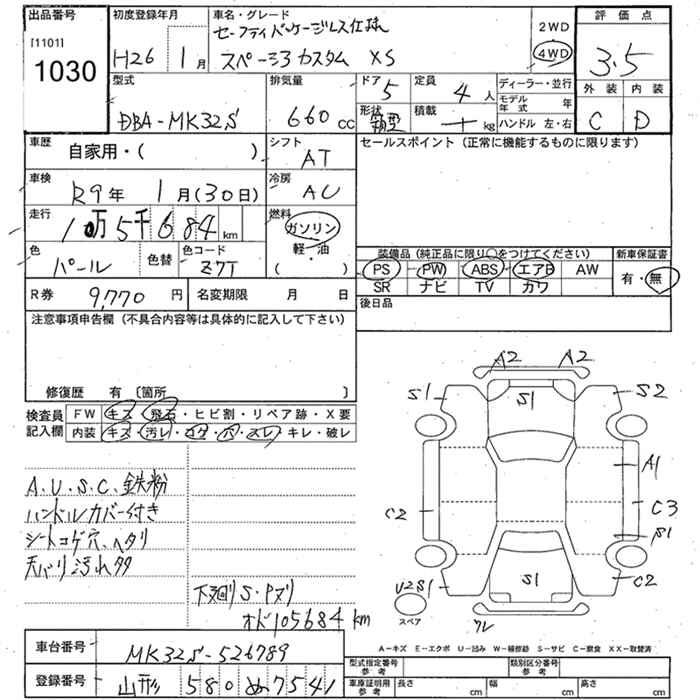 出品番号 初度登録年月 車名・グレード セーフティパッケージレス仕様 2WD 評価点
[1101] 1030 H26年 1月 スペーシア カスタム XS 4WD 3.5
型式 排気量 ドア 5 定員 4人 ディーラー・並行 外装 内装
DBA-MK32S 660cc 形状 箱型 積載 kg モデル年式 年 C D
ハンドル 左・右
車歴 自家用・( ) シフト AT セールスポイント(正常に機能するものに限ります)
車検 R9年 1月(30日) 冷房 AC
走行 10万5千684km 燃料 ガソリン
軽・油
( )
色 パール 色替 色コード Z7T 装備品(純正品に限り○をつけてください) 新車保証書
PS PW ABS エアB AW 有・無
SR ナビ TV カワ
R券 9,770円 名変期限 月 日 後日品
注意事項申告欄(不具合内容等は具体的に記入して下さい)
修復歴 有〔箇所 〕
検査員 FW キズ・飛石・ヒビ割・リペア跡・X要
記入欄 内装 キズ・汚レ・コゲ・穴・スレ・キレ・破レ
A.U.S.C.鉄粉
ハンドルカバー付き
シートコゲ穴、ヘタリ
天バリ汚れ多
下廻りS・Pヌリ
オド105684km
A2 A2
S1 S1 S2
A1
C2 C3
S1
U2S1 S1 C2
クレ
スペア
A-キズ E-エクボ U-凹み W-補修跡 S-サビ C-腐食 XX-取替済
車台番号 MK32S-526789
登録番号 山形 580 ぬ 7541
型式指定番号 参考 類別区分番号 参考
車庫証明用 参考 長さ cm 幅 cm 高さ cm